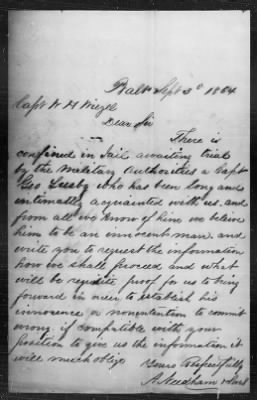 Balt Sept 3d 1864
Capt W H Wiegel
Dear Sir
There is
confined in Jail awaiting trial
by the Military Authorities a Capt
Geo Leeby who has been long and
intimally acquainted with us. and
from all we know of him we belive
him to be an innocent man. and
write you to request the information
how we shall proceed and what
will be requisite proof for us to bring
forward in order to establish his
innocence or nonintention to commit
wrong if compatible with your
position to give us the information it
will much oblige
Yours Respectfully
A Needham & Sons